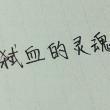 弑血的灵魂